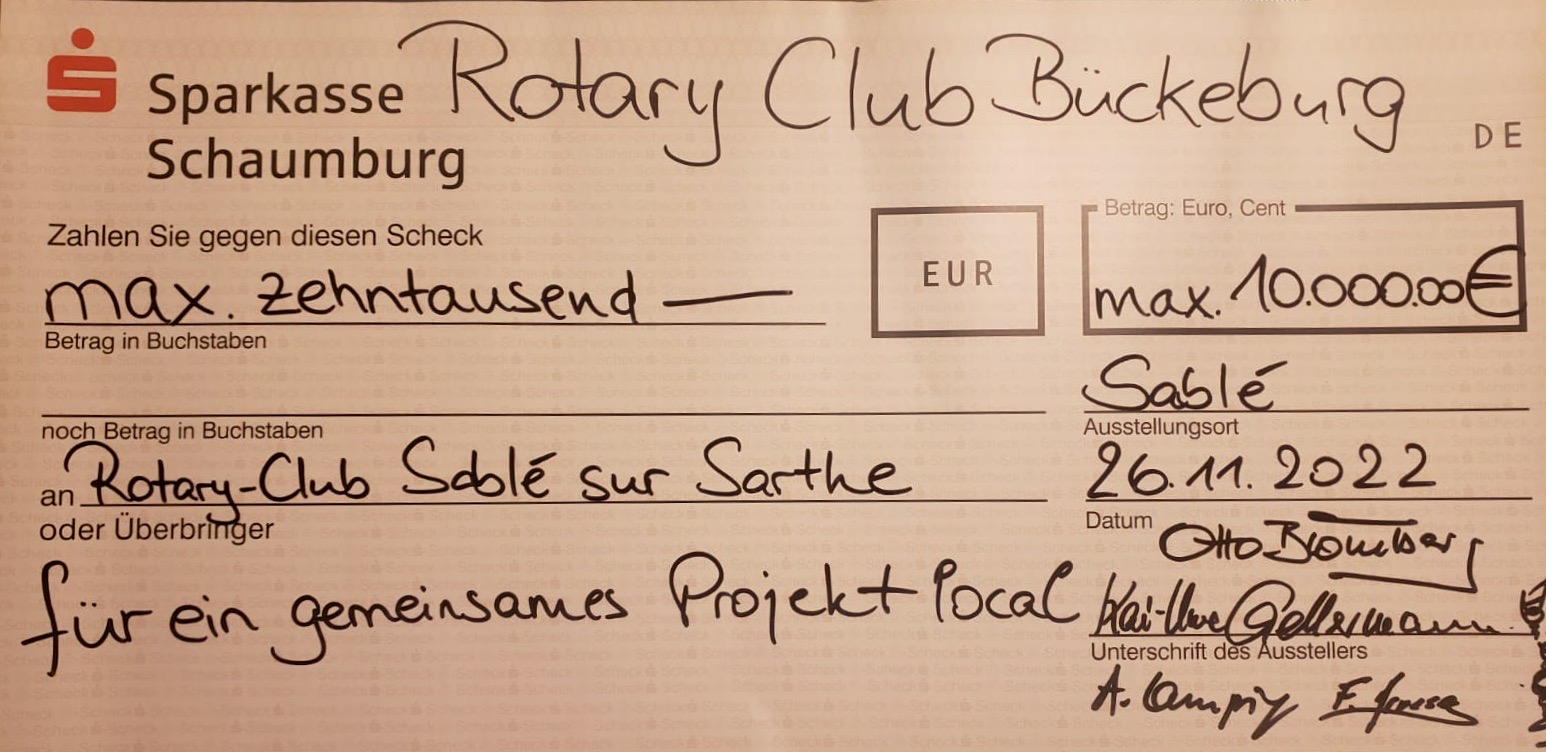 Sparkasse
Schaumburg
Rotary Club Bückeburg
DE
Zahlen Sie gegen diesen Scheck
max. zehntausend —
Betrag in Buchstaben
EUR
Betrag: Euro, Cent
max. 10.000.00€
noch Betrag in Buchstaben
Sablé
Ausstellungsort
an Rotary-Club Sablé sur Sarthe
oder Überbringer
26.11.2022
Datum
für ein gemeinsames Projekt local
Otto Blomberg
Kai-Uwe Gellermann
Unterschrift des Ausstellers
A.
F.